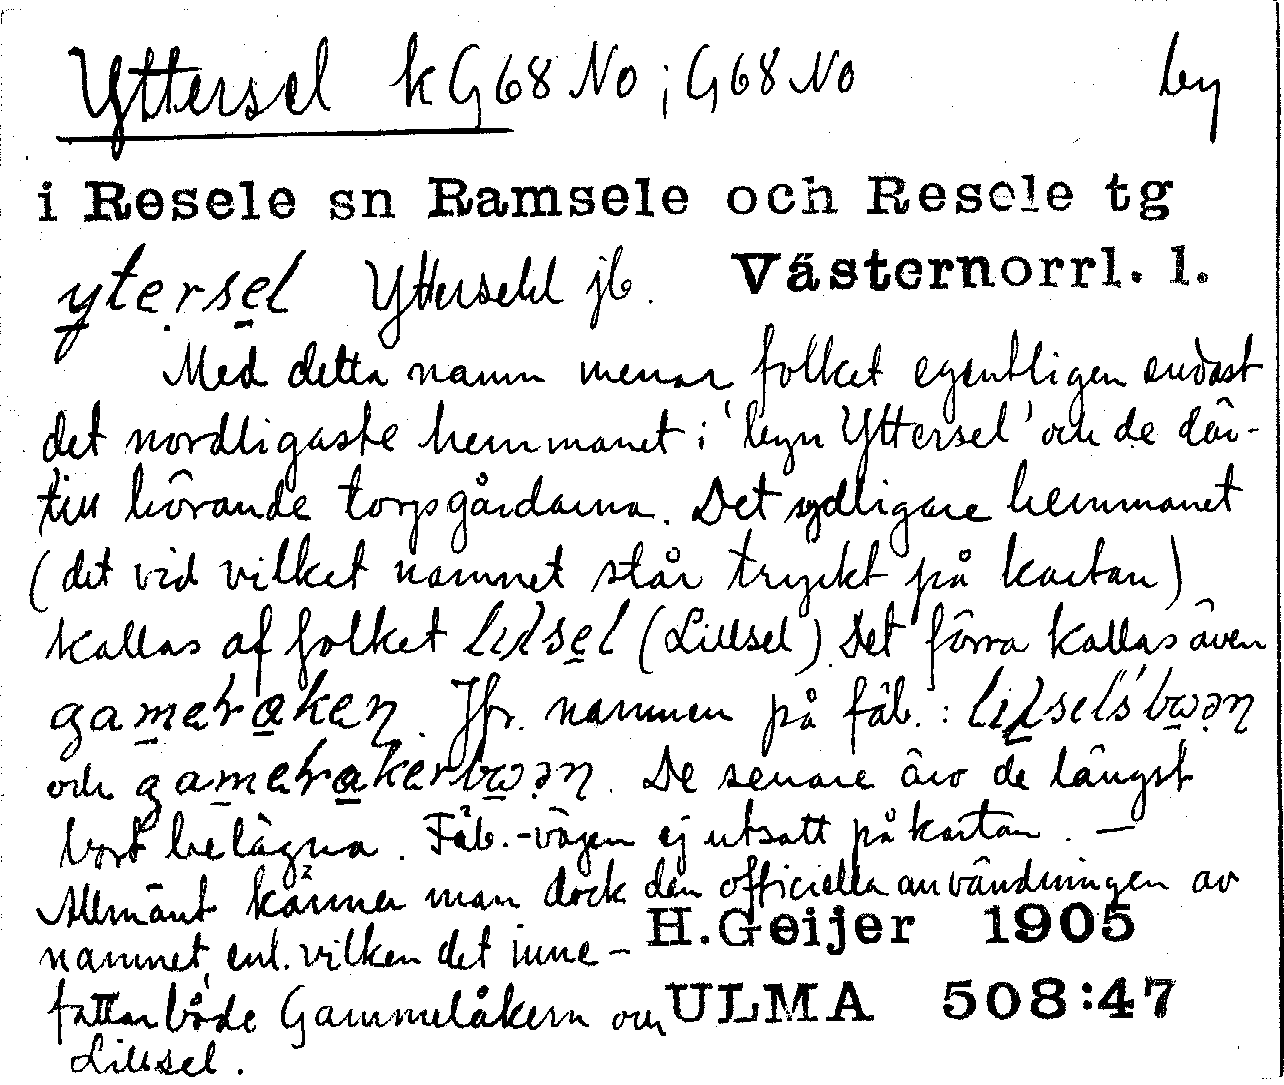 Yttersel k G68 No ; G68 No by
i Resele sn Ramsele och Resele tg
ytersel Yttersehl jb. Västernorrl. l.
Med detta namn menar folket egentligen endast
det nordligaste hemmanet i 'byn Yttersel' och de där-
till hörande torpgårdarna. Det sydligare hemmanet
(det vid vilket namnet står tryckt på kartan)
kallas af folket (Lillsel). Det förra kallas även
Jfr. namnen på fäb. :
och De senare äro de längst
bort belägna. Fäb.-vägen ej utsatt på kartan. —
Allmänt känner man dock den officiella användningen av
namnet, enl. vilken det inne- H. Geijer 1905
fattar både Gammelåkern och ULMA 508:47
Lillsel.